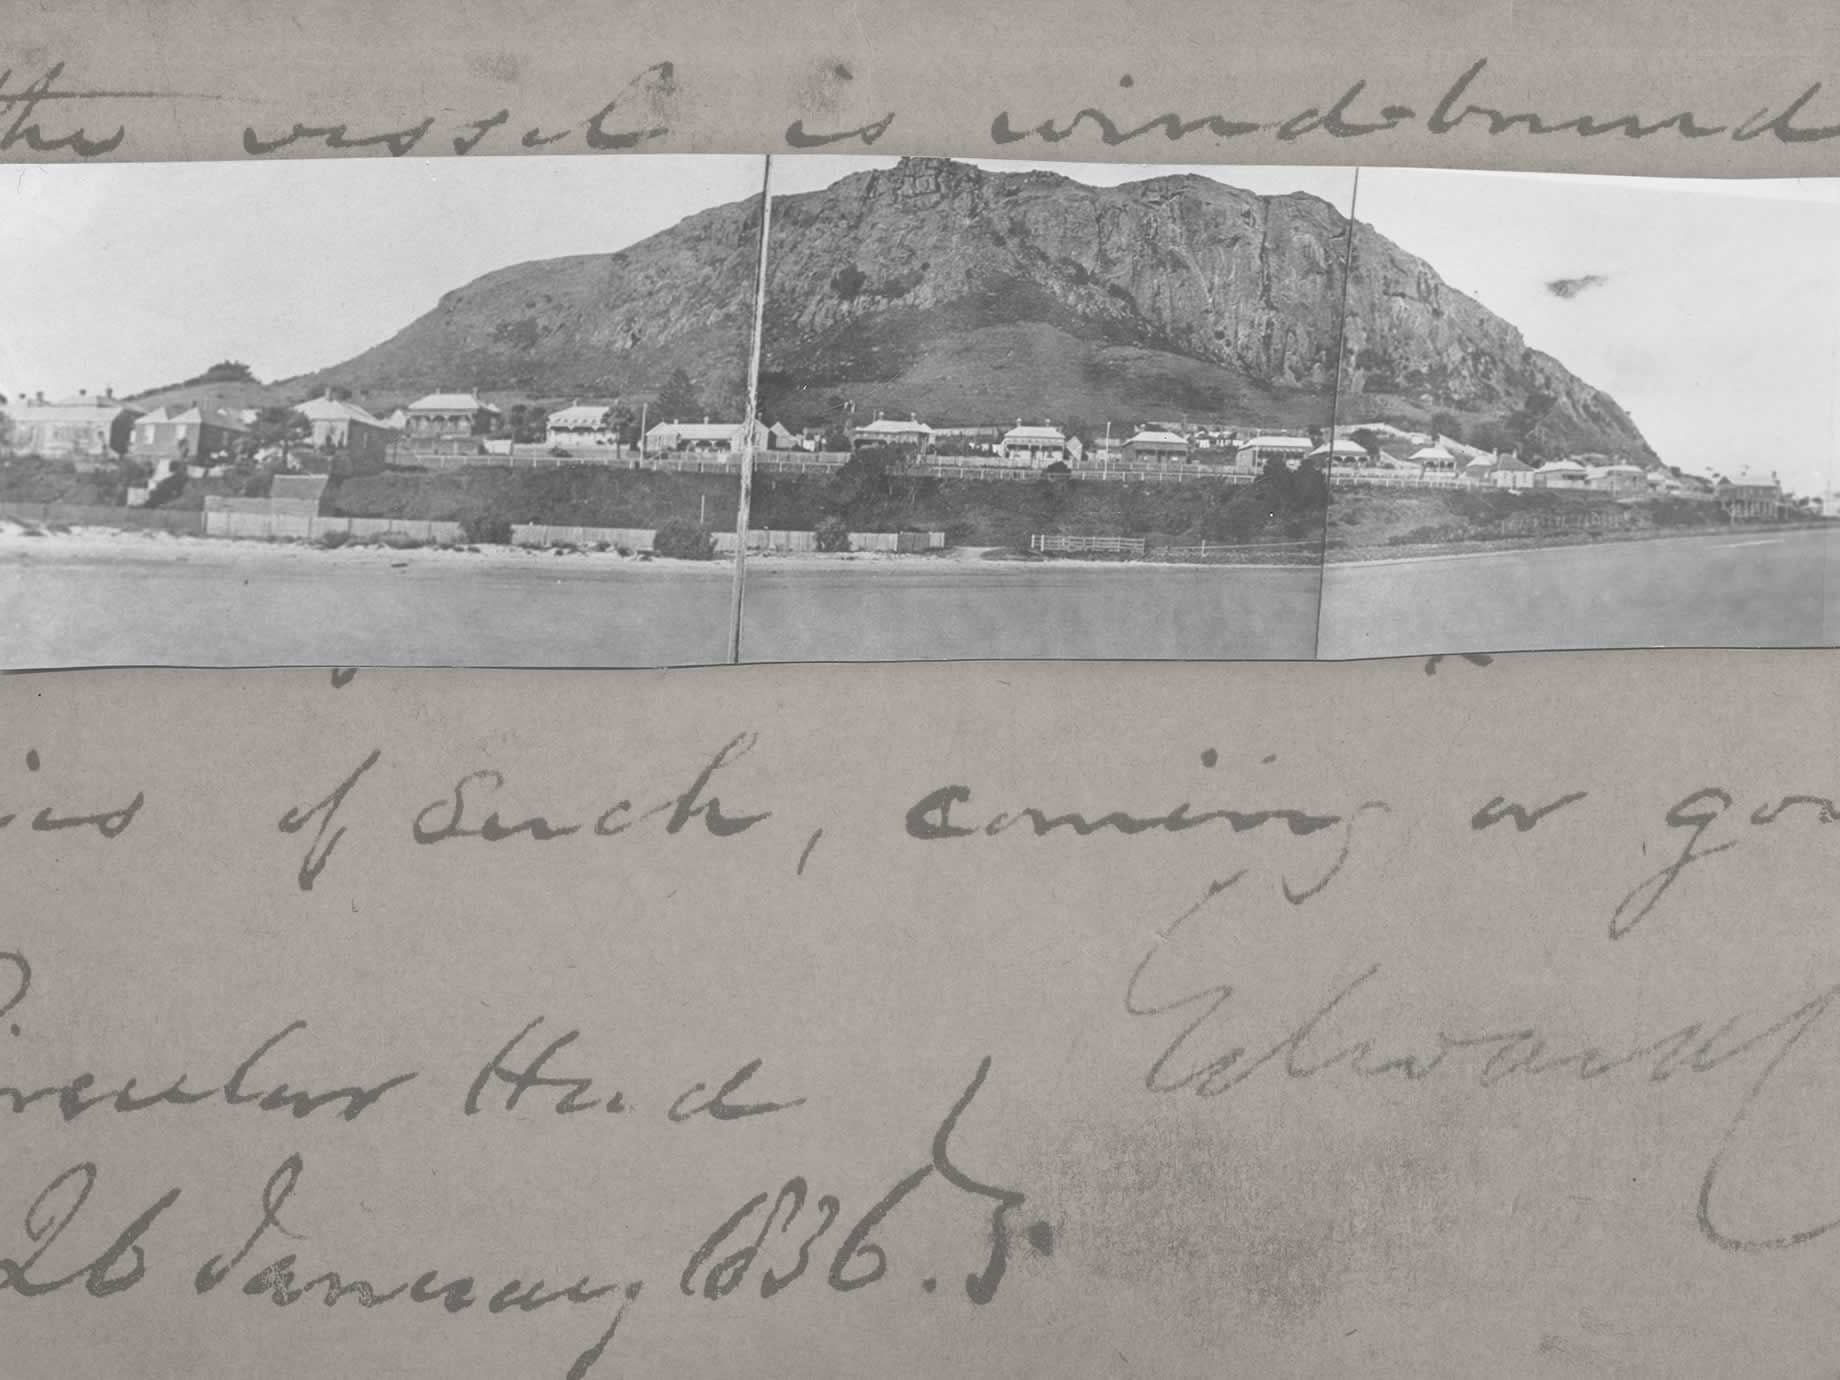 the vessel is wind-bound
ies of Such, coming or goi
Circular Head
26 January 1836.
Edward